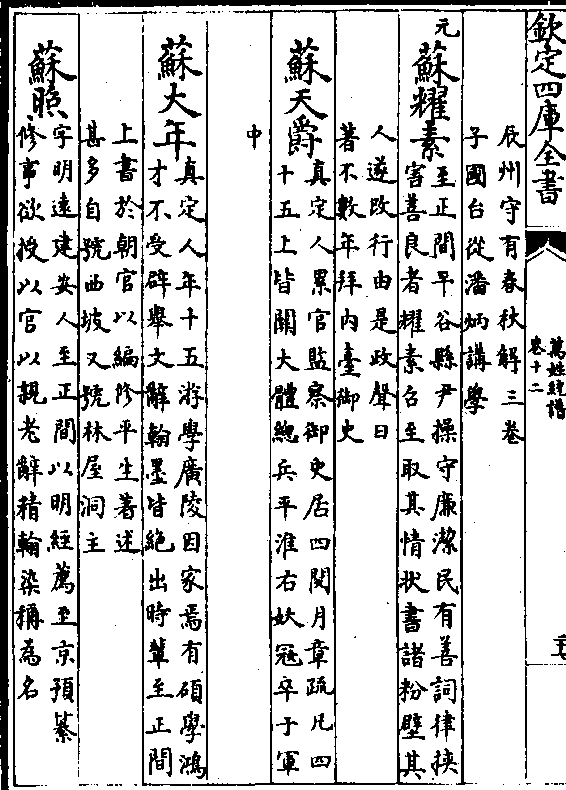 欽定四庫全書
萬姓統譜
卷十二
辰州守有春秋解三卷
子國台從潘炳講學
元
蘇耀素
至正間平谷縣尹操守廉潔民有善詞律挾
害善良者耀素召至取其情狀書諸粉壁其
人遂改行由是政聲日
著不數年拜內臺御史
蘇天爵
真定人累官監察御史居四閱月章疏凡四
十五上皆關大體總兵平淮右妖冦卒于軍
中
蘇大年
真定人年十五游學廣陵因家焉有碩學鴻
才不受辟舉文辭翰墨皆絶出時輩至正間
上書於朝官以編修平生著述
甚多自號西坡又號林屋洞主
蘇照
字明遠建安人至正間以明經薦至京預纂
修事欲授以官以親老辭精翰染稱為名